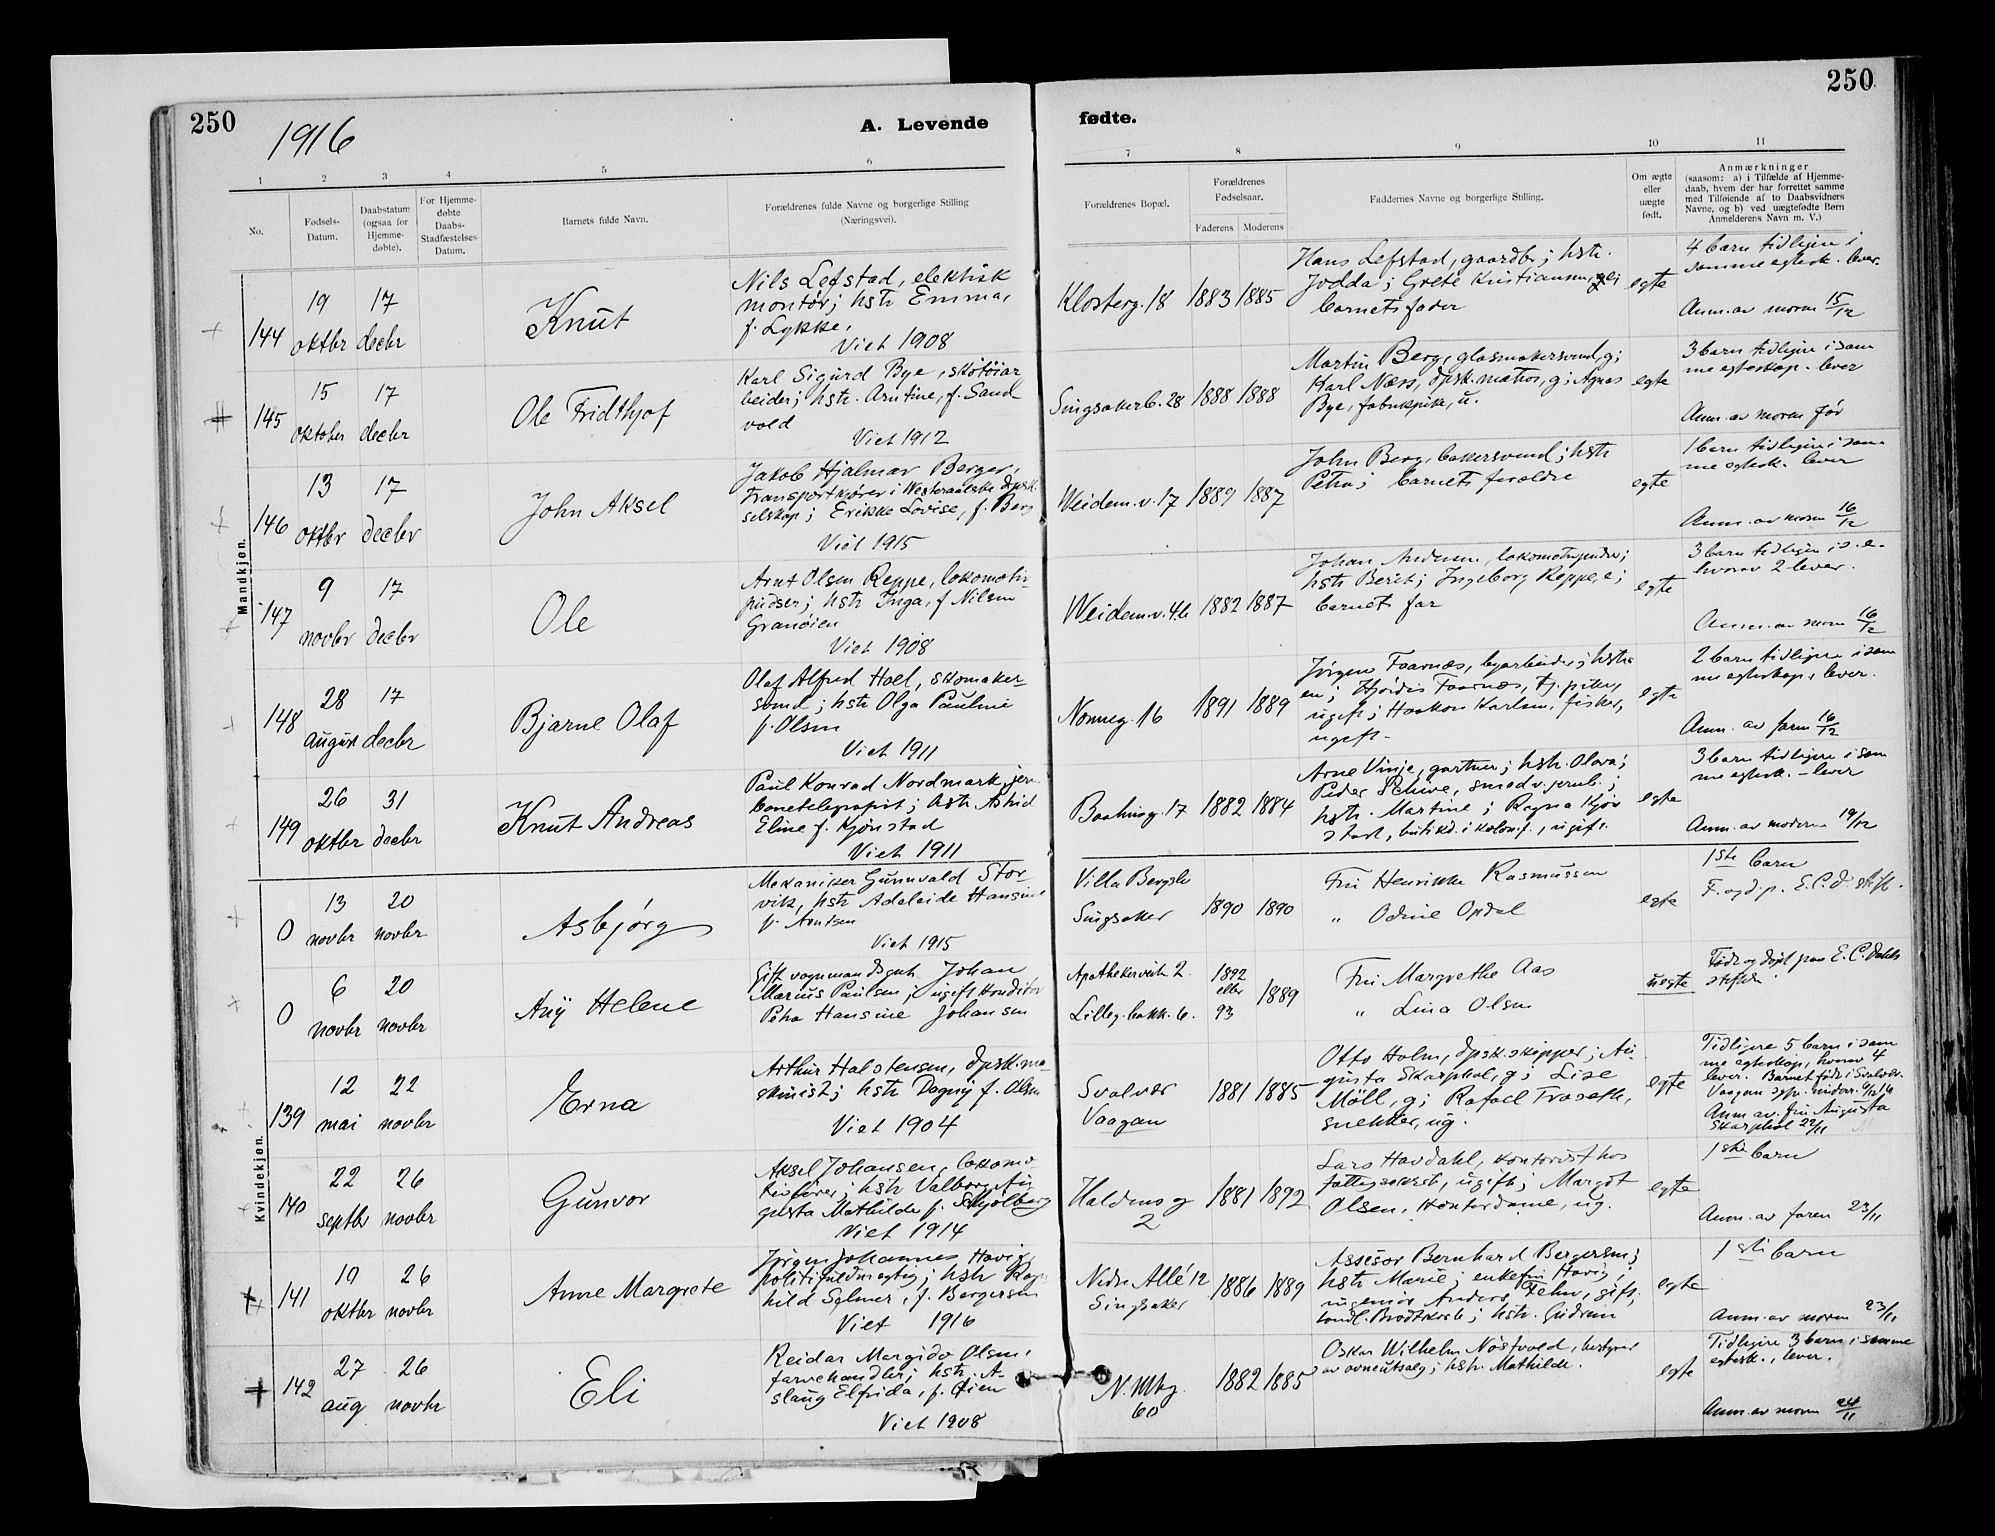 250
1916
A. Levende
fødte.
250
1 2 3 4 5 6 7 8 9 10 11
No.
Fødsels-
Datum.
Daabstatum
(ogsaa for
Hjemme-
døbte).
For Hjemme-
døbte
Daabs-
Stadfæstelses-
Datum.
Barnets fulde Navn.
Forældrenes fulde Navne og borgerlige Stilling
(Næringsvei).
Forældrenes Bopæl.
Forældrenes
Fødselsaar.
Faderens Moderens
Faddernes Navne og borgerlige Stilling.
Om ægte
eller
uægte
født.
Anmærkninger
(saasom: a) i Tilfælde af Hjemme-
daab, hvem der har forrettet samme
med Tilføiende af to Daabsvidners
Navne, og b) ved uægtefødte Børn
Anmelderens Navn m. V.)
Mandkjøn.
144
19
oktbr
17
decbr
Knut
Nils Lefstad, elektrisk
montør; hstr Emma,
f. Lykke.
Viet 1908
Klosterg. 18
1883 1885
Hans Lefstad, gaardbr; hstr.
Jodda; Grete Kristiansen,
barnets fader
egte
4 barn tidligere i
samme egtesk. lever.
Anm. av moren 15/12
145
15
oktober
17
decbr
Ole Fridthjof
Karl Sigurd Bye, skotöiar
beider; hstr. Arntine, f. Sand
vold
Viet 1912
Singsakerb. 28
1888 1888
Martin Berg, glasmakersvend, g;
Karl Næss, dpsk. matros, g; Agnes
Bye, fabrikpike, u.
egte
3 barn tidligere i sam
me egteskap. lever
Anm. av moren før
146
13
oktbr
17
decbr
John Aksel
Jakob Hjalmar Berger,
Transportkjører i Westeraalske dpsk.
selskap; Erikke Lovise, f. Berg
Viet 1915
Weidem. v. 17
1889 1887
John Berg, bakersvend; hstr
Petra; barnets forældre
egte
1 barn tidligere i sam
me egtesk. lever
Anm. av moren 16/12
147
9
novbr
17
decbr
Ole
Arnt Olsen Reppe, lokomotiv
pudser; hstr Inga, f. Nilsen
Granøien
Viet 1908
Weidem. v. 4b
1882 1887
Johan Andersen, lokomotivpudser;
hstr Berit; Ingeborg Reppe, e;
barnets far
egte
3 barn tidligere i s. e.
hvorav 2 lever.
Anm. av moren 16/12
148
28
august
17
decbr
Bjarne Olaf
Olaf Alfred Hoel, skomaker-
svend; hstr Olga Pauline
f. Olsen
Viet 1911
Nonneg. 16
1891 1889
Jørgen Faarnæs, byarbeider; hstr-
en; Hjördis Faarnæs, tj. pike,
ugift; Haakon Karlsen, fisker,
ugift.
egte
2 barn tidligere i sam
me egteskap, lever.
Anm. av faren 16/12
149
26
oktbr
31
decbr
Knut Andreas
Paul Konrad Nordmark, jern
banetelegrafist; hstr Astrid
Eline f. Kjønstad
Viet 1911
Baahusg. 17
1882 1884
Arne Vinje, gartner; hstr. Olava;
Peder Schive, smed v. jernb.;
hstr. Martine; Ragna Kjøn
stad, butikd. i kolon.f., ugift.
egte
3 barn tidligere i sam
me egtesk. - lever
Anm. av moderen 19/12
Kvindekjøn.
0
13
novbr
20
novbr
Asbjørg
Mekaniker Gunnvald Stor
vik, hstr Adelaide Hansine
f. Arntsen
Viet 1915
Villa Bergslo
Singsaker
1890 1890
Fru Henrikke Rasmussen
" Odine Opdal
egte
1ste barn
F. og d. p. E. C. D. stift.
0
6
novbr
20
novbr
Aüy Helene
Gift vognmandsgut Johan
Marius Paulsen; ugift Konditor
Petra Hansine Johansen
Apothekerveit 2
Lilleg. bakk. 6.
1892
eller
93
1889
Fru Margrethe Aas
" Lina Olsen
uegte
Født og døpt paa E. C. Dahls
stiftelse.
139
12
mai
22
novbr
Erna
Arthur Halstensen, dpsk. ma
skinist; hstr Dagny f. Olsen
Viet 1904
Svolvær
Vaagan
1881 1885
Otto Holm, dpsk. skipper; Au
gusta Skarphol, g; Lise
Möll, g; Rafael Fraseth,
snekker, ug.
egte
Tidligere 5 barn i sam
me egteskap, hvorav 4
lever. Barnet født i Svolvær.
Vaagan spr. underr. 6/12 16
Anm. av. fru Augusta
Skarphol 22/11
140
22
septbr
26
novbr
Gunvor
Aksel Johansen, lokomo
tivfører; hstr Valborg Au
gusta Mathilde f. Skjølberg
Viet 1914
Haldens g
2
1881 1892
Lars Havdahl, kontorist hos
fattigvæsenet, ugift; Margot
Olsen, kontordame, ug.
egte
1ste barn
Anm. av faren 23/11
141
19
oktbr
26
novbr
Anne Margrete
Jørgen Johannes Havig,
politifuldmægtig; hstr Rag
hild Selmer, f. Bergersen
Viet 1916
Nedre Allé 12
Singsaker
1886 1889
Assesor Bernhard Bergersen;
hstr Marie; enkefru Havig;
ingeniør Anders Fehn, gift;
kondl. Brodtkorb; hstr. Gudrun
egte
1ste barn
Anm. av moren 23/11
142
27
aug
26
novbr
Eli
Reidar Margido Olsen,
farvehandler; hstr. A-
slaug Elfrida, f. Øien
Viet 1908
N. Mbg.
60
1882 1885
Oskar Wilhelm Nöstvold, bestyrer
av ovneutsalg; hstr Mathilde.
egte
Tidligere 3 barn i samme
egtesk., lever.
Anm. av moren 24/11